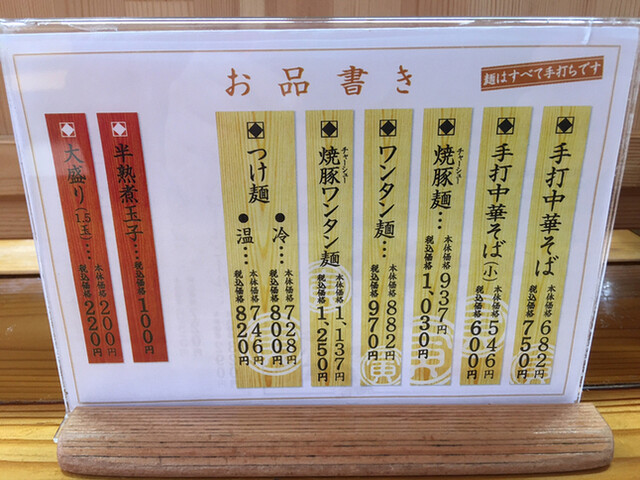 お品書き
麺はすべて手打ちです
手打中華そば
本体価格 682円
税込価格 750円
手打中華そば(小)
本体価格 546円
税込価格 600円
チャーシュー
焼豚麺…
本体価格 937円
税込価格 1,030円
ワンタン麺…
本体価格 882円
税込価格 970円
チャーシュー
焼豚ワンタン麺
本体価格 1,137円
税込価格 1,250円
つけ麺
●冷…
本体価格 728円
税込価格 800円
●温…
本体価格 746円
税込価格 820円
半熟煮玉子…
税込価格 100円
大盛り(1.5玉)…
本体価格 200円
税込価格 220円